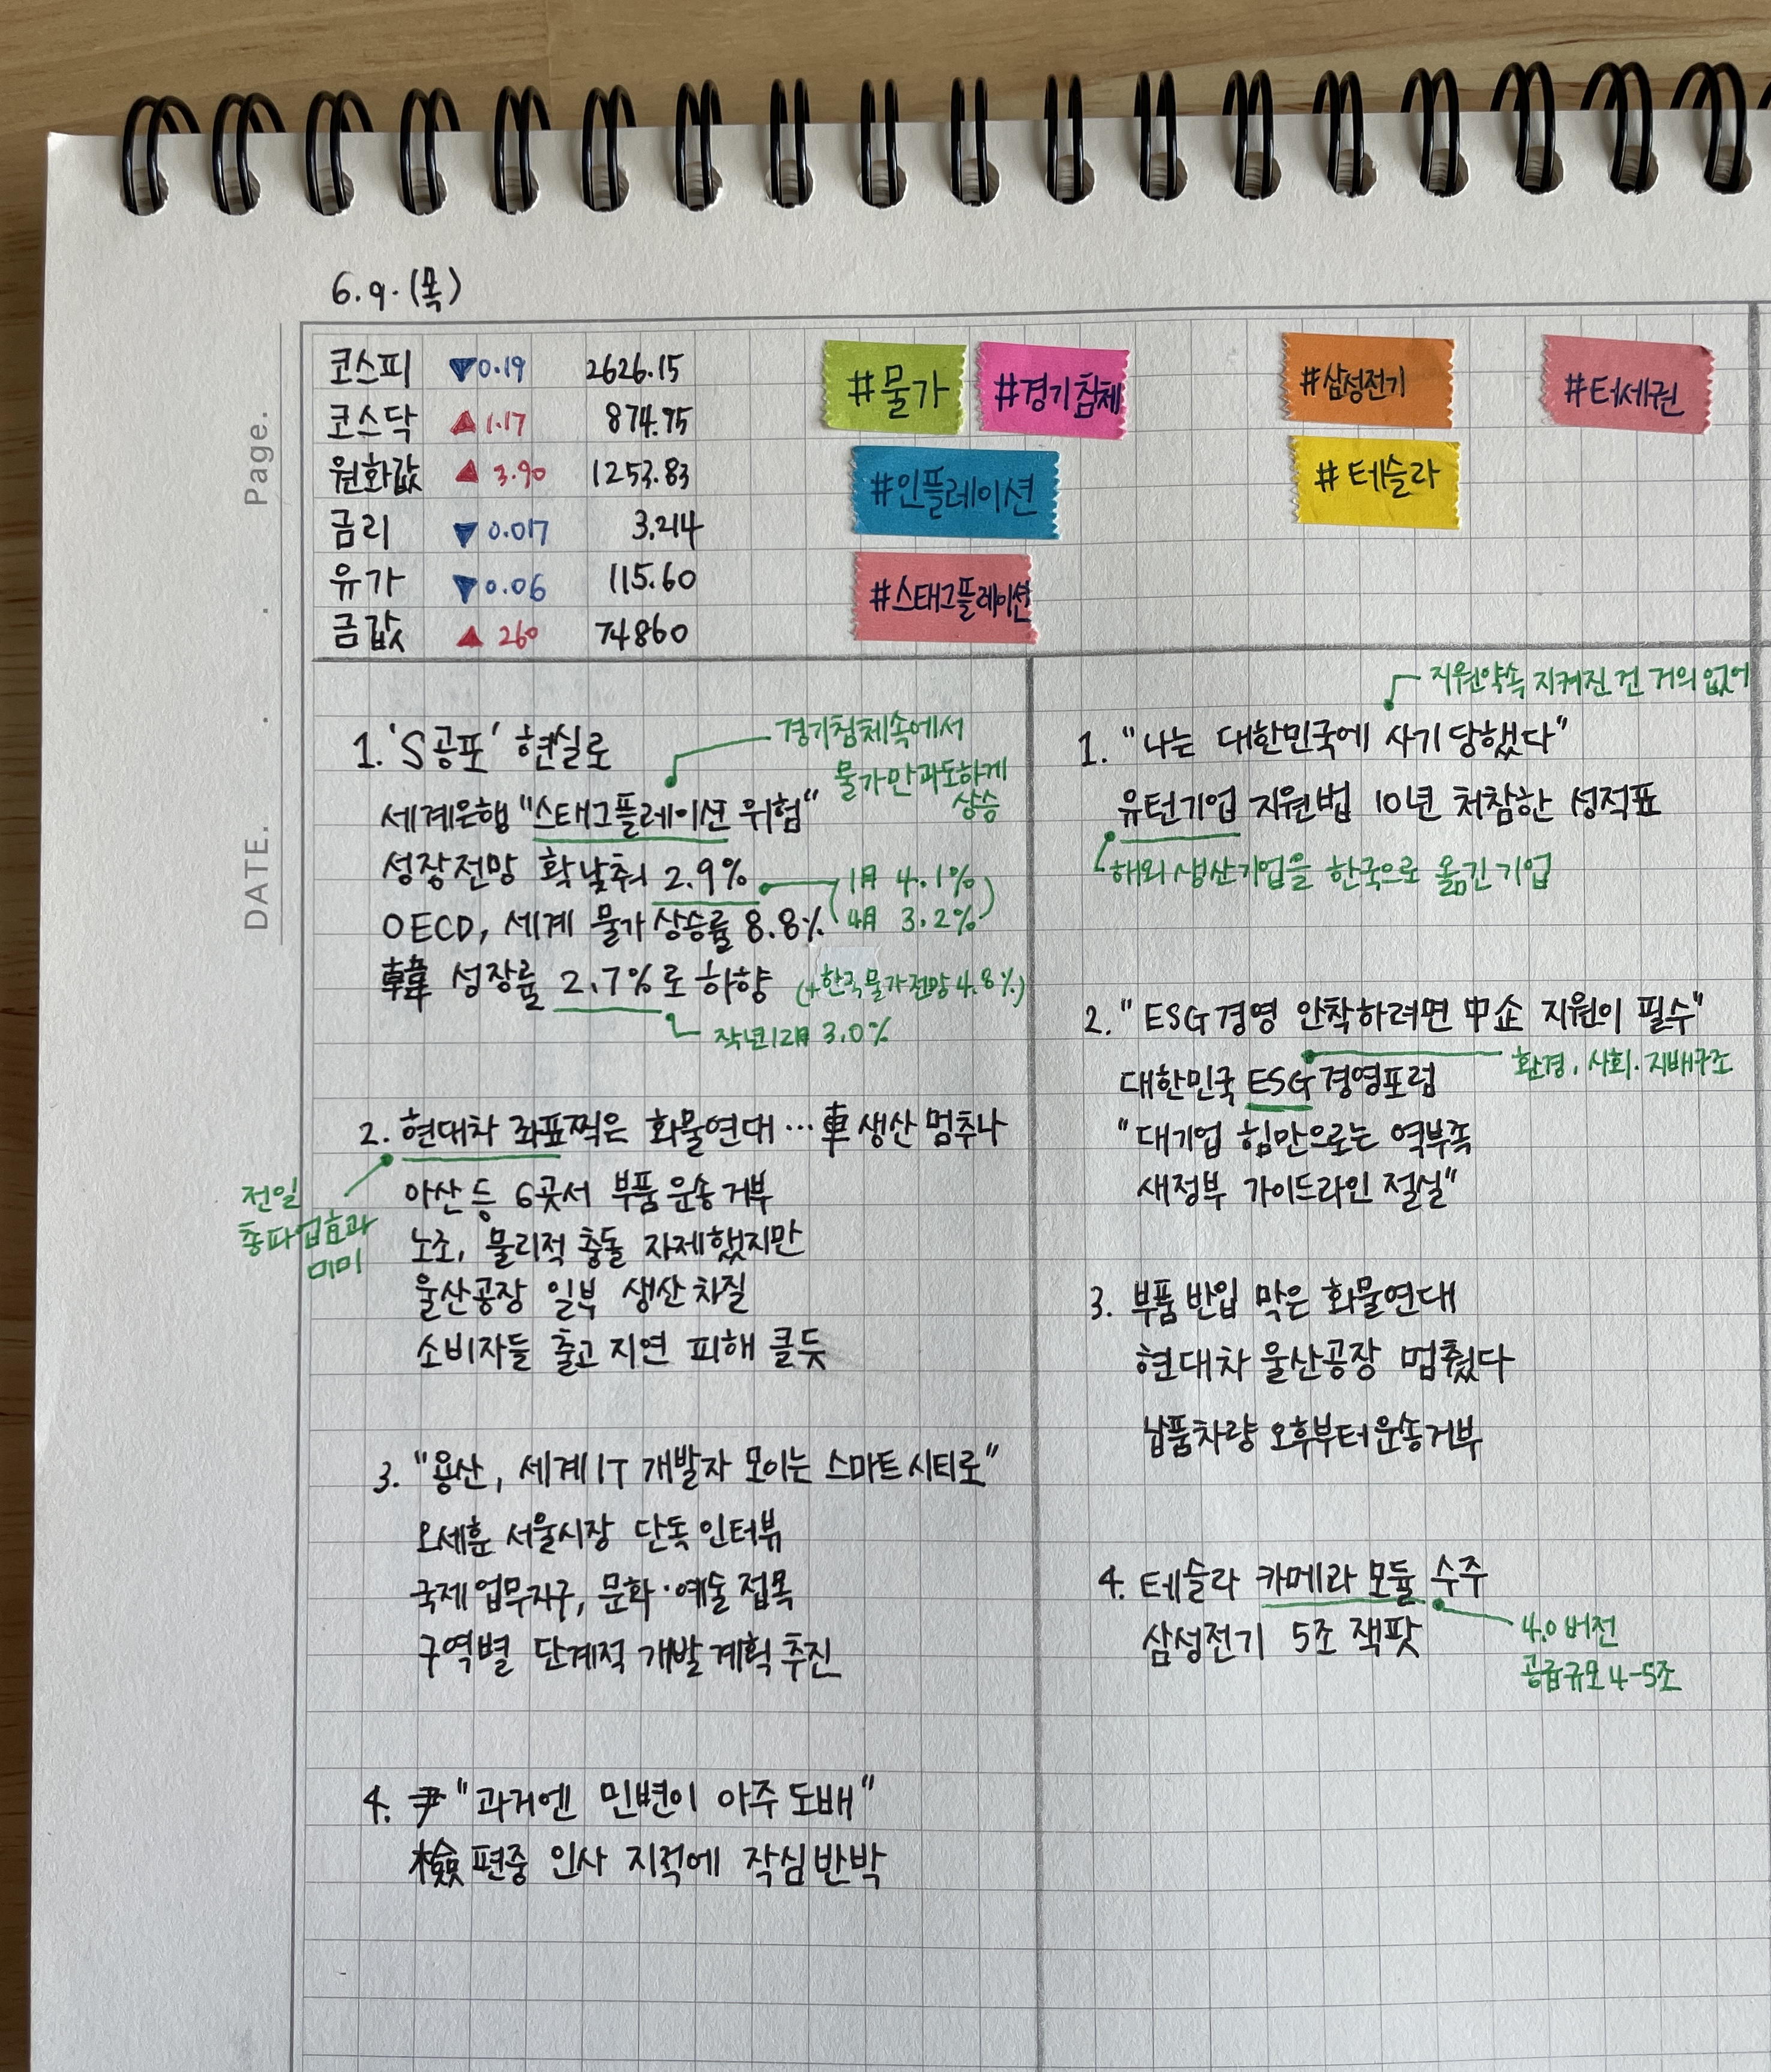 6.9.(목)
Page.
DATE. . .
코스피 ▼0.19 2626.15
코스닥 ▲1.17 874.95
원화값 ▲3.90 1253.83
금리 ▼0.017 3.214
유가 ▼0.06 115.60
금값 ▲260 74860
#물가
#경기침체
#인플레이션
#스태그플레이션
#삼성전기
#테슬라
#터세권
1. 'S공포' 현실로
경기침체속에서
물가만과도하게
상승
세계은행 "스태그플레이션 위험"
성장전망 확 낮춰 2.9%
1月 4.1%
4月 3.2%
OECD, 세계 물가상승률 8.8%
韓 성장률 2.7%로 하향
(+한국물가전망 4.8%)
작년12月 3.0%
2. 현대차 좌표찍은 화물연대…車 생산 멈추나
전일
총파업효과
미미
아산 등 6곳서 부품 운송 거부
노조, 물리적 충돌 자제했지만
울산공장 일부 생산 차질
소비자들 출고 지연 피해 클듯
3. "용산, 세계 IT 개발자 모이는 스마트시티로"
오세훈 서울시장 단독 인터뷰
국제업무지구, 문화·예술 접목
구역별 단계적 개발계획 추진
4. 尹 "과거엔 민변이 아주 도배"
檢 편중 인사 지적에 작심반박
지원약속 지켜진 건 거의 없어
1. "나는 대한민국에 사기당했다"
유턴기업 지원법 10년 처참한 성적표
해외 생산기업을 한국으로 옮긴 기업
2. "ESG경영 안착하려면 中企 지원이 필수"
환경, 사회. 지배구조
대한민국 ESG경영포럼
"대기업 힘만으로는 역부족
새정부 가이드라인 절실"
3. 부품 반입 막은 화물연대
현대차 울산공장 멈췄다
납품차량 오후부터 운송거부
4. 테슬라 카메라 모듈 수주
삼성전기 5조 잭팟
4.0 버전
공급규모 4-5조